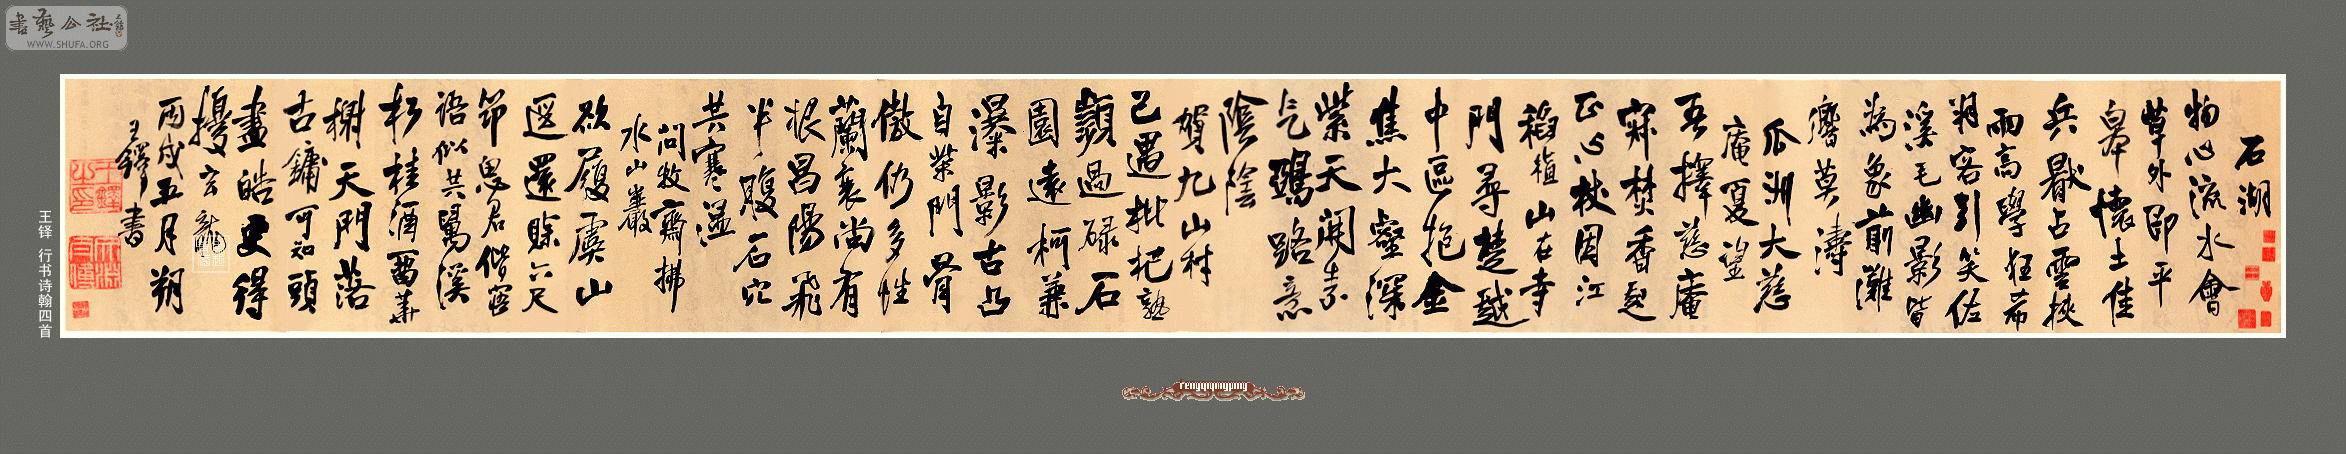 書藝公社
WWW.SHUFA.ORG
石湖
物心流水會
草外即平
皋懷土佳
兵厭占雲挾
雨高學狂希
朔客引笑佐
溪毛幽影皆
為象前灘
響莫濤
瓜洲大慈
庵夏望
吾擇慈庵
寐焚香起
正心杖因江
稻植山在寺
門尋楚越
中區抱金
焦大壑深
紫天闕素
气鴻路意
陰陰
賀九山村
已過枇杷熟
顥過碌石
園遠柯兼
瀑影古凸
自柴門骨
傲仍多性
蘭衰尚有
根昌陽飛
半腹石穴
共寒溫
問牧齋拂
水山巖
欲履虞山
遥還賒六尺
節曳君偕寤
語似共閟溪
杉桂酒酉萧
榭天門落
古鏞可知頭
畫皓更得
擾玄龍
丙戌五月朔
王鐸書
王铎 行书诗翰四首